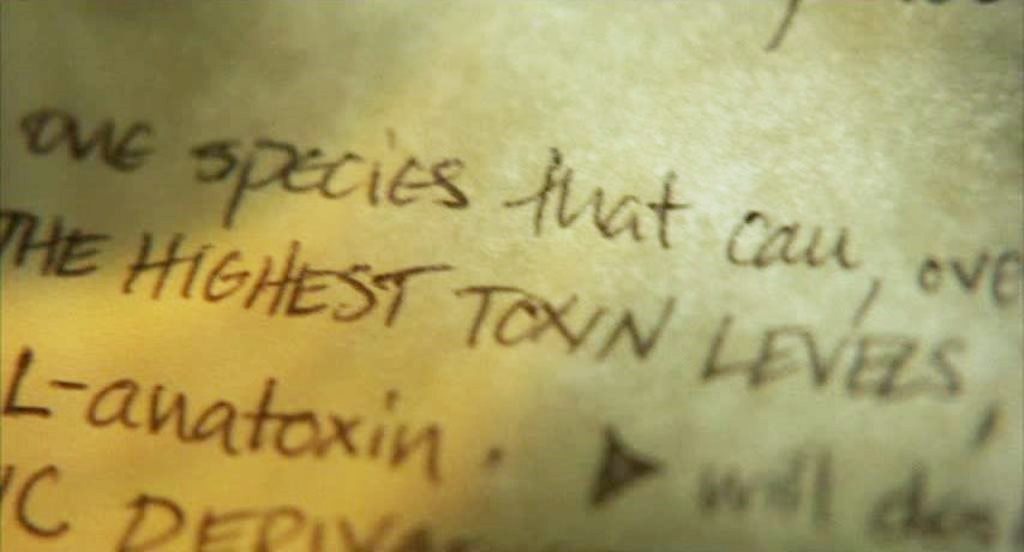 one species that can, ove
THE HIGHEST TOXIN LEVELS,
L-anatoxin. ▶ will
IC DERIVA